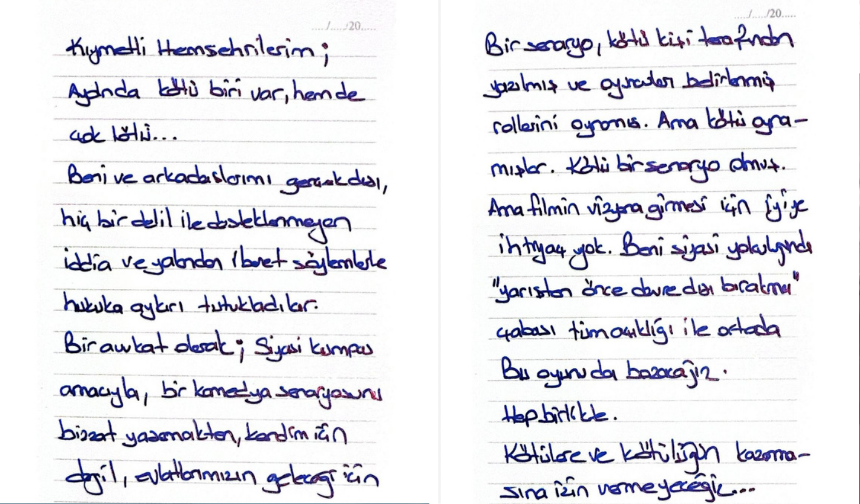 ..../..../20.....
Kıymetli Hemşehrilerim;
Aydında kötü biri var, hem de
çok kötü...
Beni ve arkadaşlarımı gerçek dışı,
hiç bir delil ile desteklenmeyen
iddia ve yalandan ibaret söylemlerle
hukuka aykırı tutukladılar.
Bir avukat olarak; Siyasi kumpas
amacıyla, bir komedya senaryosunu
bizzat yaşamaktan, kendim için
değil, evlatlarımızın geleceği için
..../..../20.....
Bir senaryo, kötü kişi tarafından
yazılmış ve oyuncular belirlenmiş
rollerini oynamış. Ama kötü oyna-
mışlar. Kötü bir senaryo olmuş.
Ama filmin vizyona girmesi için iyiye
ihtiyaç yok. Beni siyasi yolculuğunda
"yarıştan önce devre dışı bırakma"
çabası tüm açıklığı ile ortada
Bu oyunu da bozacağız.
Hep birlikte.
Kötülere ve kötülüğün kazanma-
sına izin vermeyeceğiz...